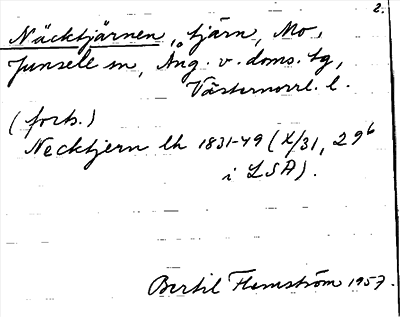 2.
Näcktjärnen, tjärn, Mo,
Junsele sn, Ång. v. doms. tg,
Västernorrl. l.
(forts.)
Necktjern lh 1831-49 (X/31, 29b
i LSA).
Bertil Flemström 1957.